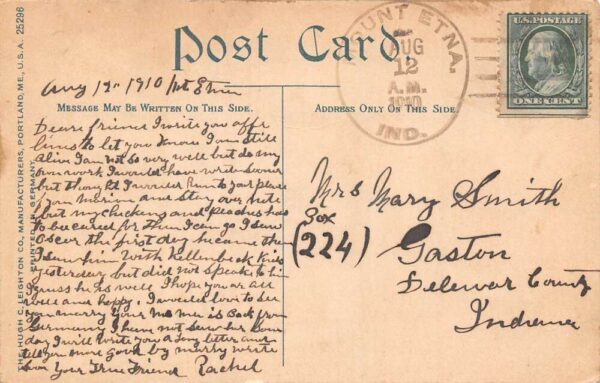 Post Card
MOUNT ETNA.
AUG
12
A.M.
1910
IND.
U.S. POSTAGE
ONE CENT
Aug 12" 1910
MESSAGE MAY BE WRITTEN ON THIS SIDE.
ADDRESS ONLY ON THIS SIDE.
THE HUGH C. LEIGHTON CO., MANUFACTURERS, PORTLAND, ME., U.S.A. 25296
PRINTED IN GERMANY
Deare friend I write you a few
lines to let you know I am still
alive I am not so very well but do my
own work I would have write sooner
but thought I would run to your place
from Marion and stay over nite
but my chickens and peaches has
to be cared for then I can go I seen
Oscar the first day he came then
I seen him with
yesterday but did not speak to hi
I guess he is well I hope you ar all
well and happy. I would love to see
you Mary your is Back from
Germany I have not saw her Some
day I will write you a long letter and
tell you more good by Mary write
soon Your True Friend Rachel
Mrs Mary Smith
Box
(224) Gaston
Delewar County
Indiana